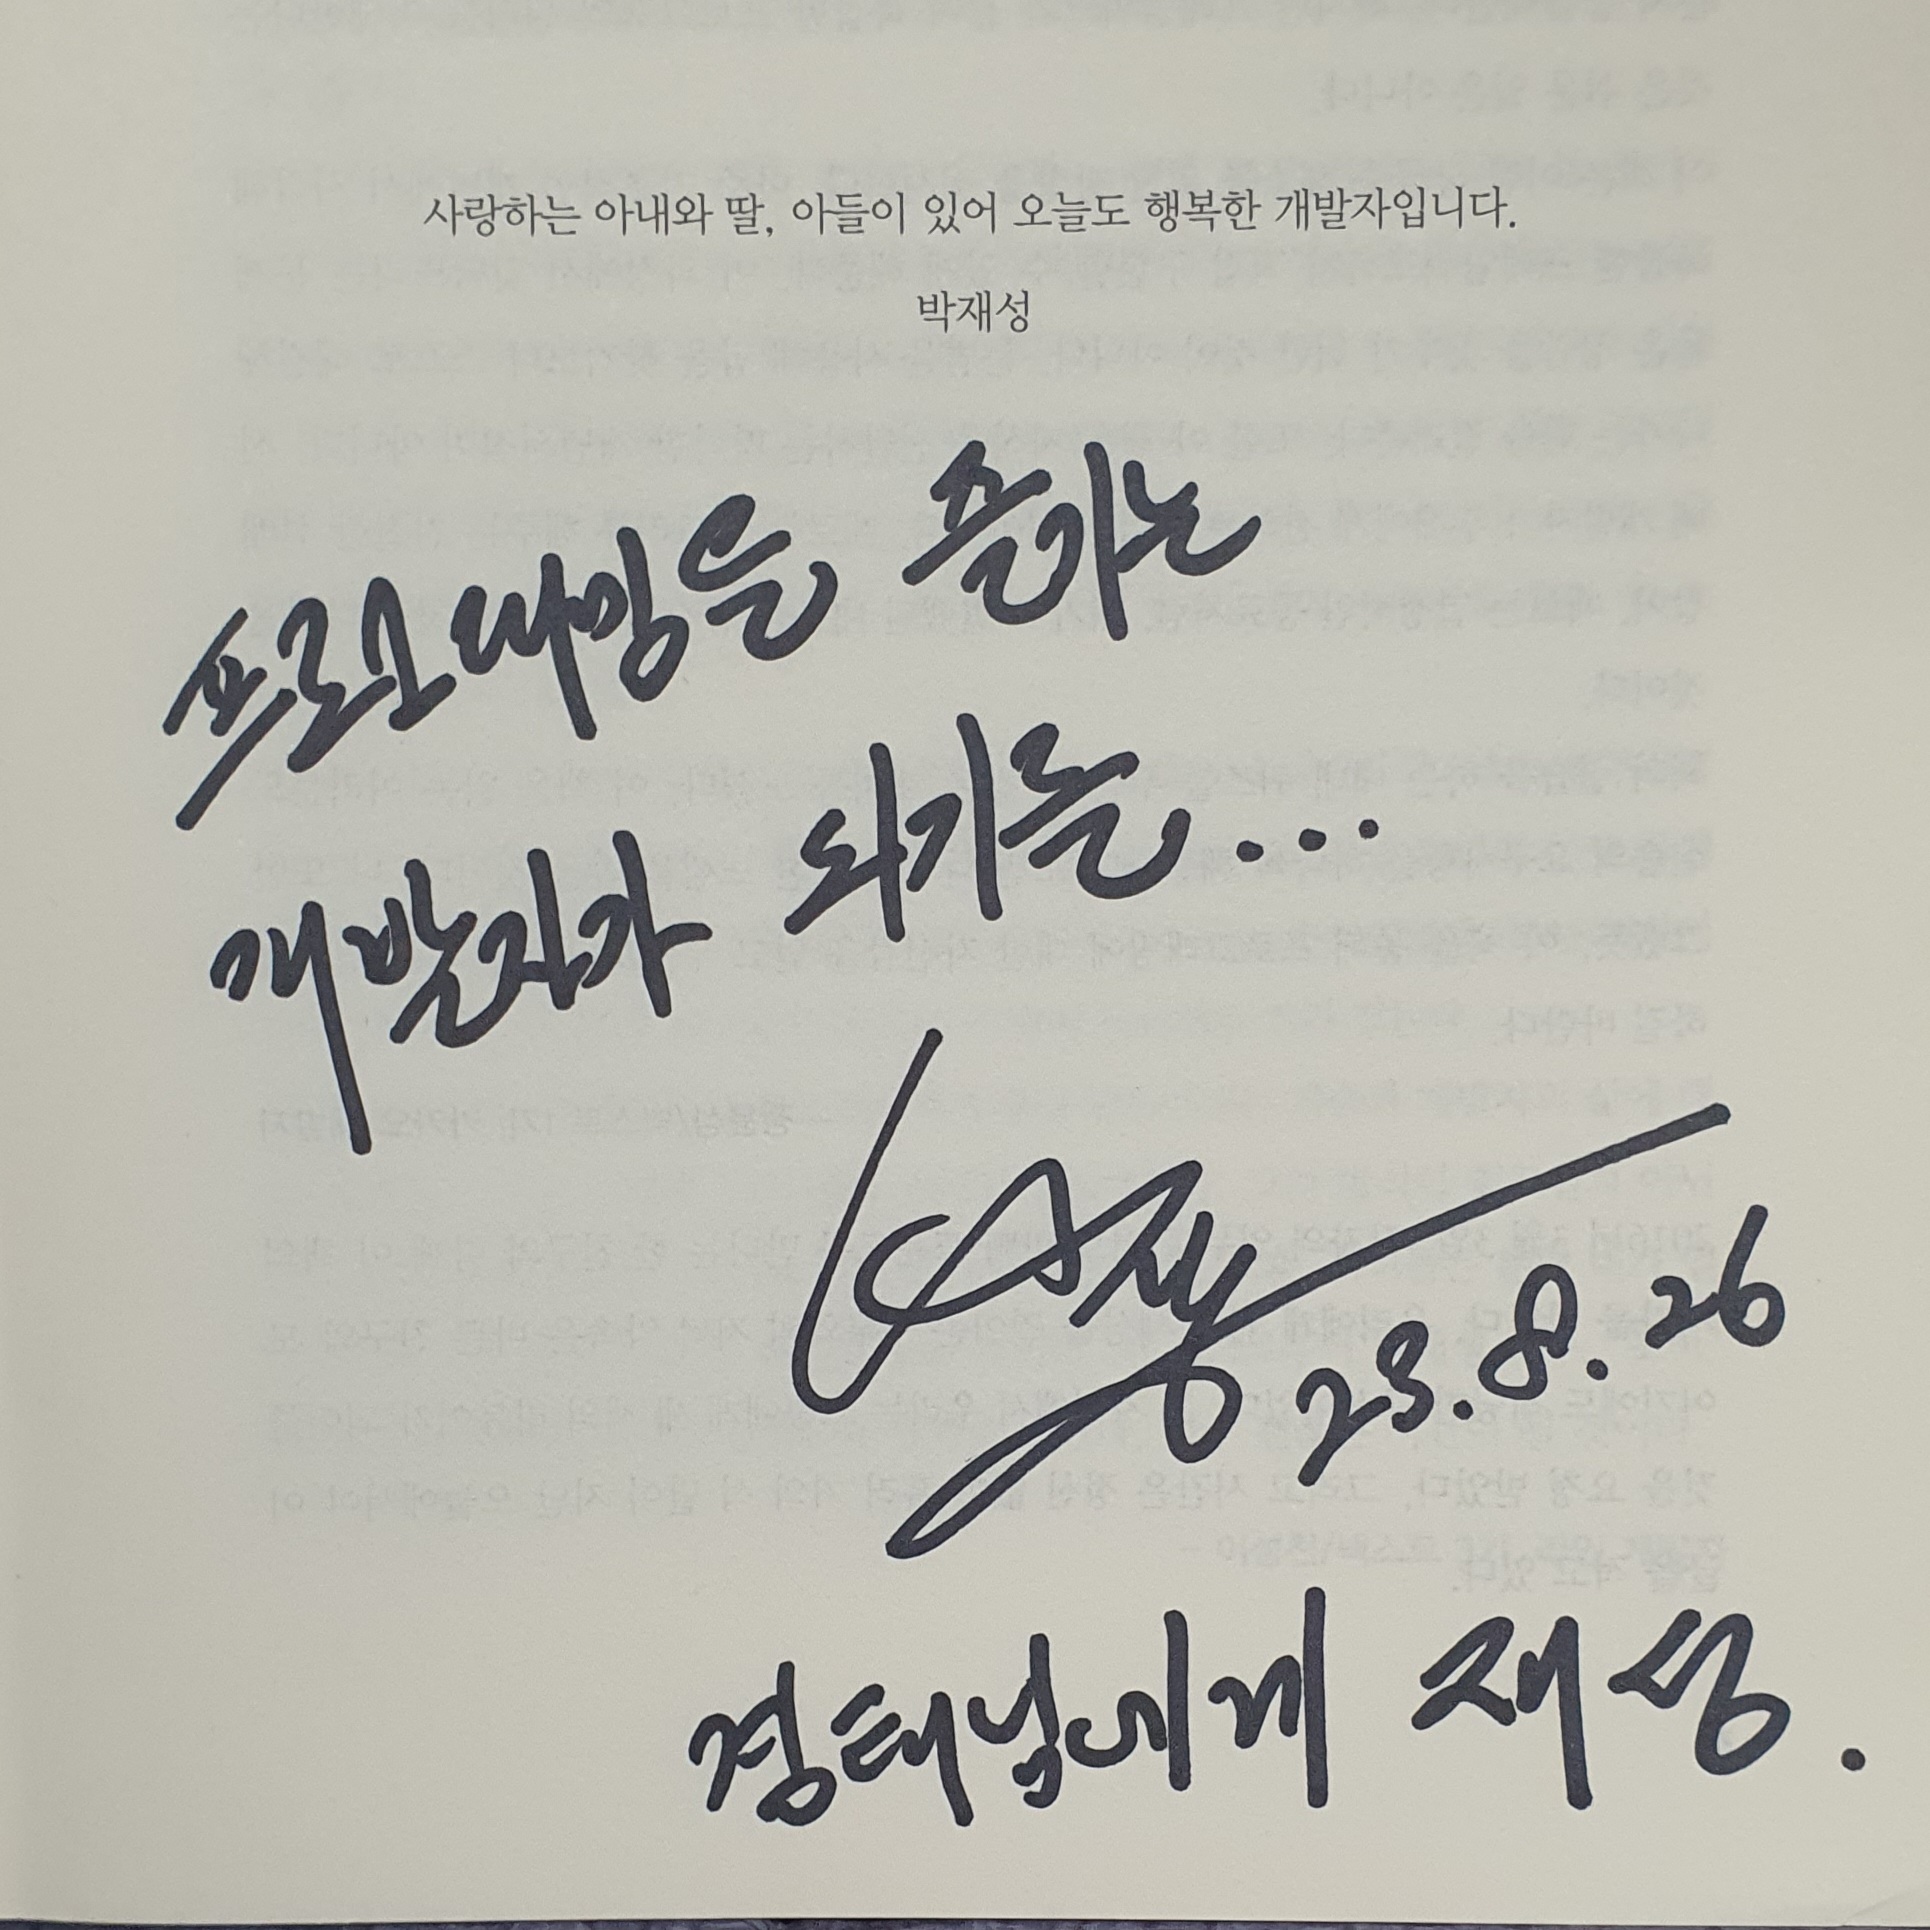 사랑하는 아내와 딸, 아들이 있어 오늘도 행복한 개발자입니다.
박재성
프로그래밍을 즐기는
개발자가 되기를...
23.8.26
경태님에게 재성.